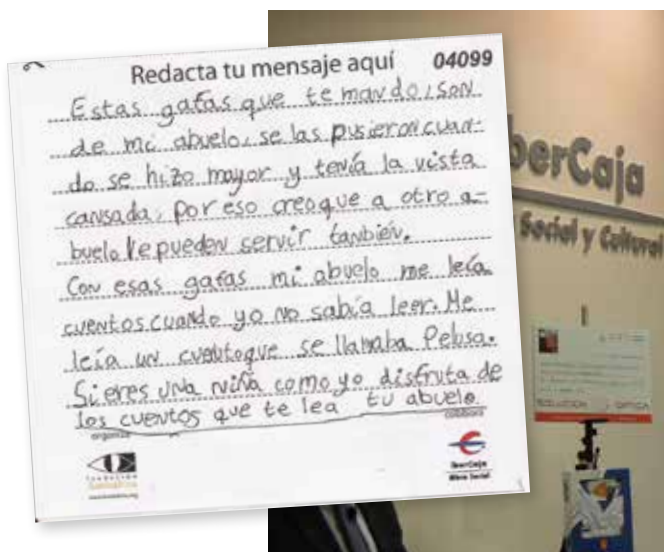 Redacta tu mensaje aquí 04099
Estas gafas que te mando, son
de mi abuelo, se las pusieron cuan-
do se hizo mayor y tenía la vista
cansada, por eso creo que a otro a-
buelo le pueden servir tanbién.
Con esas gafas mi abuelo me leía
cuentos cuando yo no sabía leer. Me
leía un cuento que se llamaba Pelusa.
Si eres una niña como yo disfruta de
los cuentos que te lea tu abuelo
organiza
colabora
iberCaja
Obra Social
berCaja
Social y Cultural